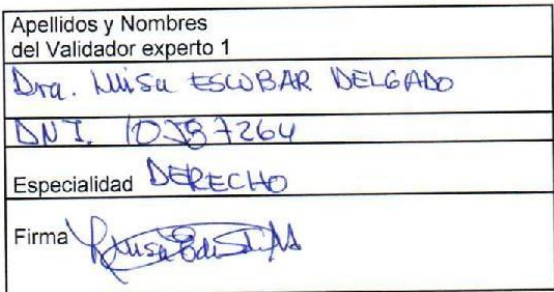 Apellidos y Nombres
del Validador experto 1
Dra. Luisa ESCOBAR DELGADO
DNI. 10587264
Especialidad DERECHO
Firma